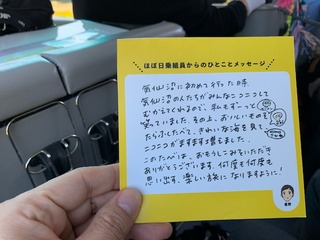 ほぼ日乗組員からのひとことメッセージ
気仙沼に初めて行った時、
気仙沼の人たちがみんなニコニコして
むかえてくれるので、私もずーっと
笑っていました。その上、おいしいものを
たらふくたべて、きれいな海を見て
ニコニコがますます増えました。
このたびは、おもうしこみをいただき
ありがとうございます。何度も何度も
思い出す、楽しい旅になりますように！